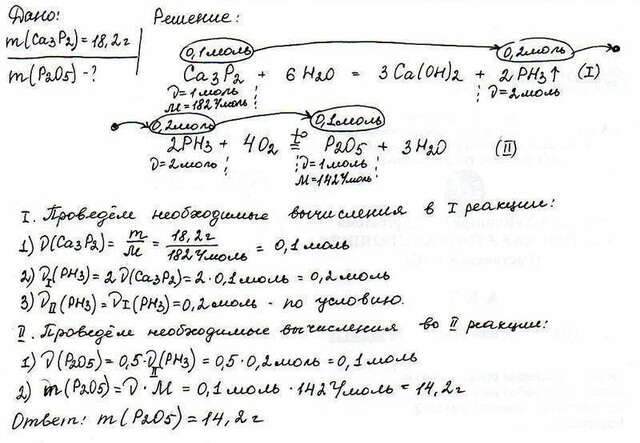 Дано: Решение:
m(Ca3P2)=18,2г
m(P2O5)-?
0,1моль 0,2моль
Ca3P2 + 6H2O = 3Ca(OH)2 + 2PH3↑ (I)
ν=1моль ν=2моль
M=182г/моль
0,2моль 0,1моль
2PH3 + 4O2 =t° P2O5 + 3H2O (II)
ν=2моль ν=1моль
M=142г/моль
I. Проведём необходимые вычисления в I реакции:
1) ν(Ca3P2)= m/M = 18,2г/182г/моль = 0,1моль
2) νI(PH3)=2ν(Ca3P2)=2·0,1моль=0,2моль
3) νII(PH3)=νI(PH3)=0,2моль - по условию.
II. Проведём необходимые вычисления во II реакции:
1) ν(P2O5)=0,5·νII(PH3)=0,5·0,2моль=0,1моль
2) m(P2O5)=ν·M=0,1моль·142г/моль=14,2г
Ответ: m(P2O5)=14,2г